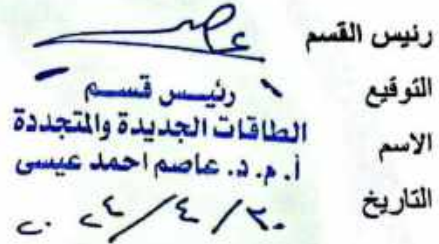 رئيس القسم
التوقيع
رئيس قسم
الطاقات الجديدة والمتجددة
الاسم
أ. م. د. عاصم احمد عيسى
التاريخ
٢٠٢٤/٤/٣٠